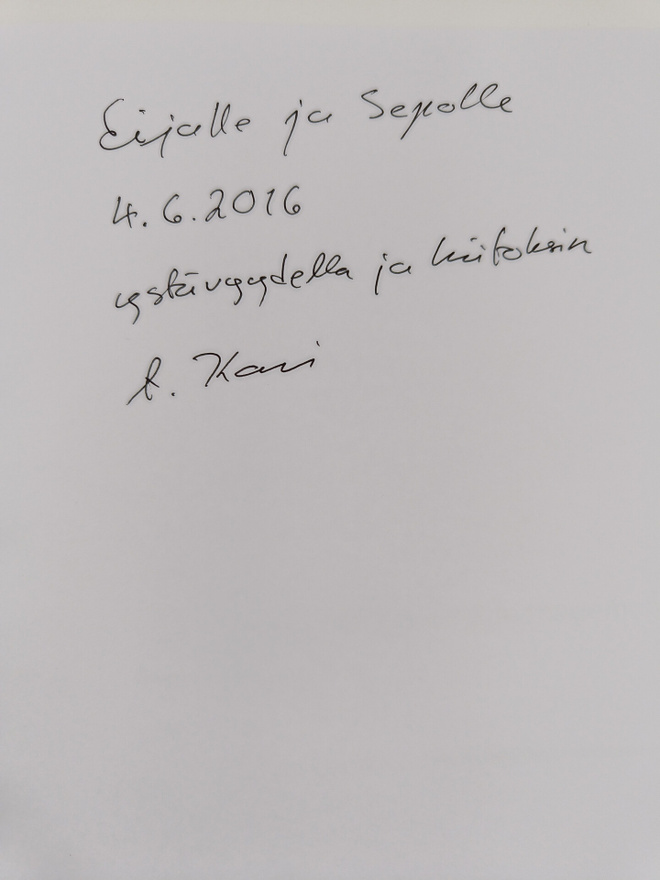 Eijalle ja Sepolle
4.6.2016
ystävyydellä ja kiitoksin
t. Kari